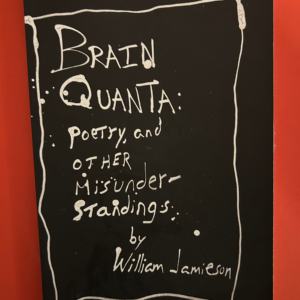 BRAIN
QUANTA:
Poetry, and
OTHER
Misunder-
Standings.
by
William Jamieson